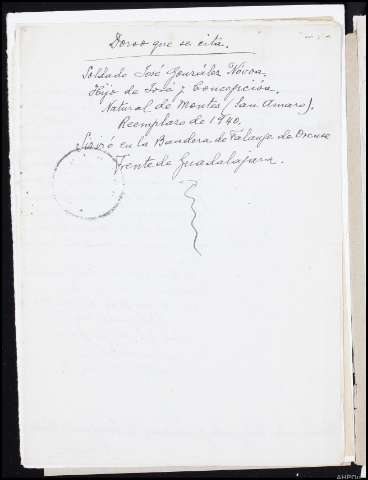 Dorso que se cita.
Soldado José González Nóvoa.
Hijo de José y Concepción.
Natural de Montes (San Amaro).
Reemplazo de 1.940.
Sirvió en la Bandera de Falange de Orense
Frente de Guadalajara.